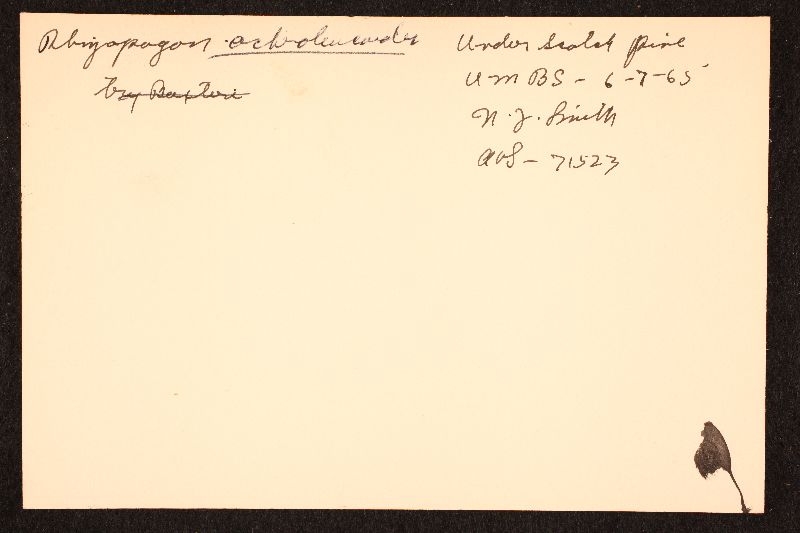 Rhizopogon ochroleucoides
try Baxteri
Under Scotch pine
UMBS - 6-7-65
N. J. Smith
AHS - 71523